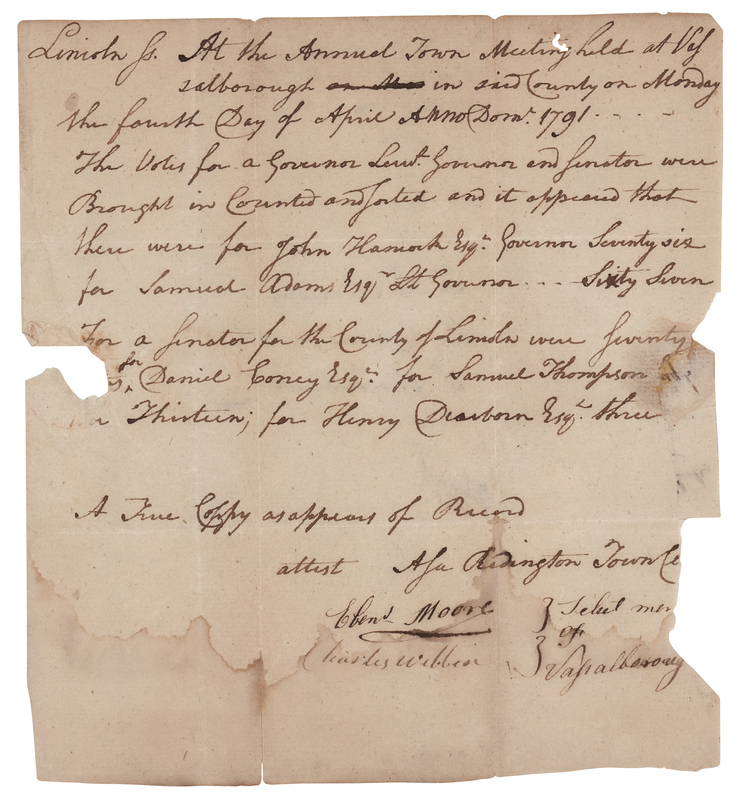 Lincoln Ss. At the Annual Town Meeting held at Vas
salborough in said County on Monday
the fourth Day of April Anno Domi. 1791 . . - -
The Votes for a Governor Leut. Governor and Senator were
Brought in Counted and sorted and it appeared that
there were for John Hancock Esqr. Governor Seventy six
for Samuel Adams Esqr Lt Governor - - - Sixty Seven
For a Senator for the County of Lincoln were Seventy
for Daniel Coney Esqr. for Samuel Thompson
Thirteen; for Henry Dearborn Esqr. three
A True Coppy as appears of Record
attest Asa Redington Town Cle
Ebenr Moore } Select men
of
Charles Webber } Vassalboroug